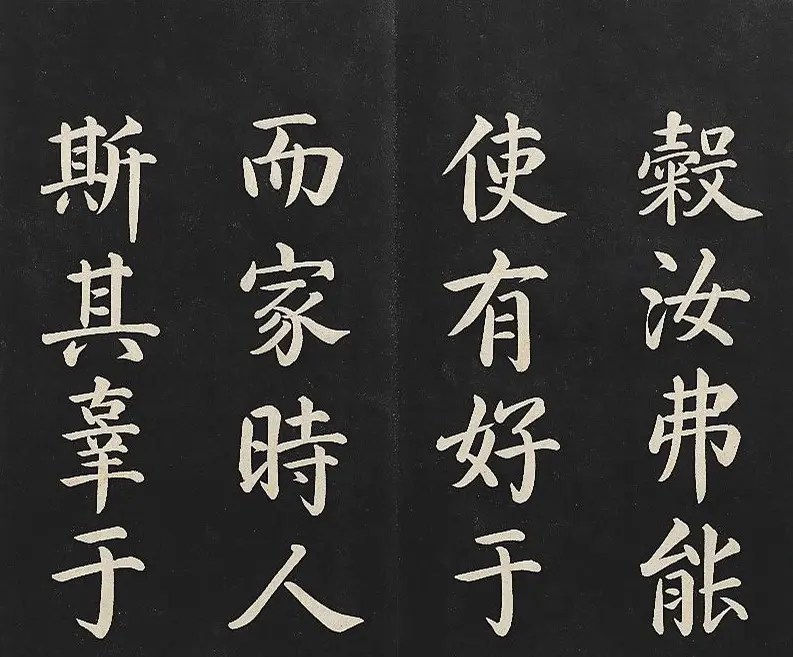 糓汝弗能
使有好于
而家時人
斯其辜于